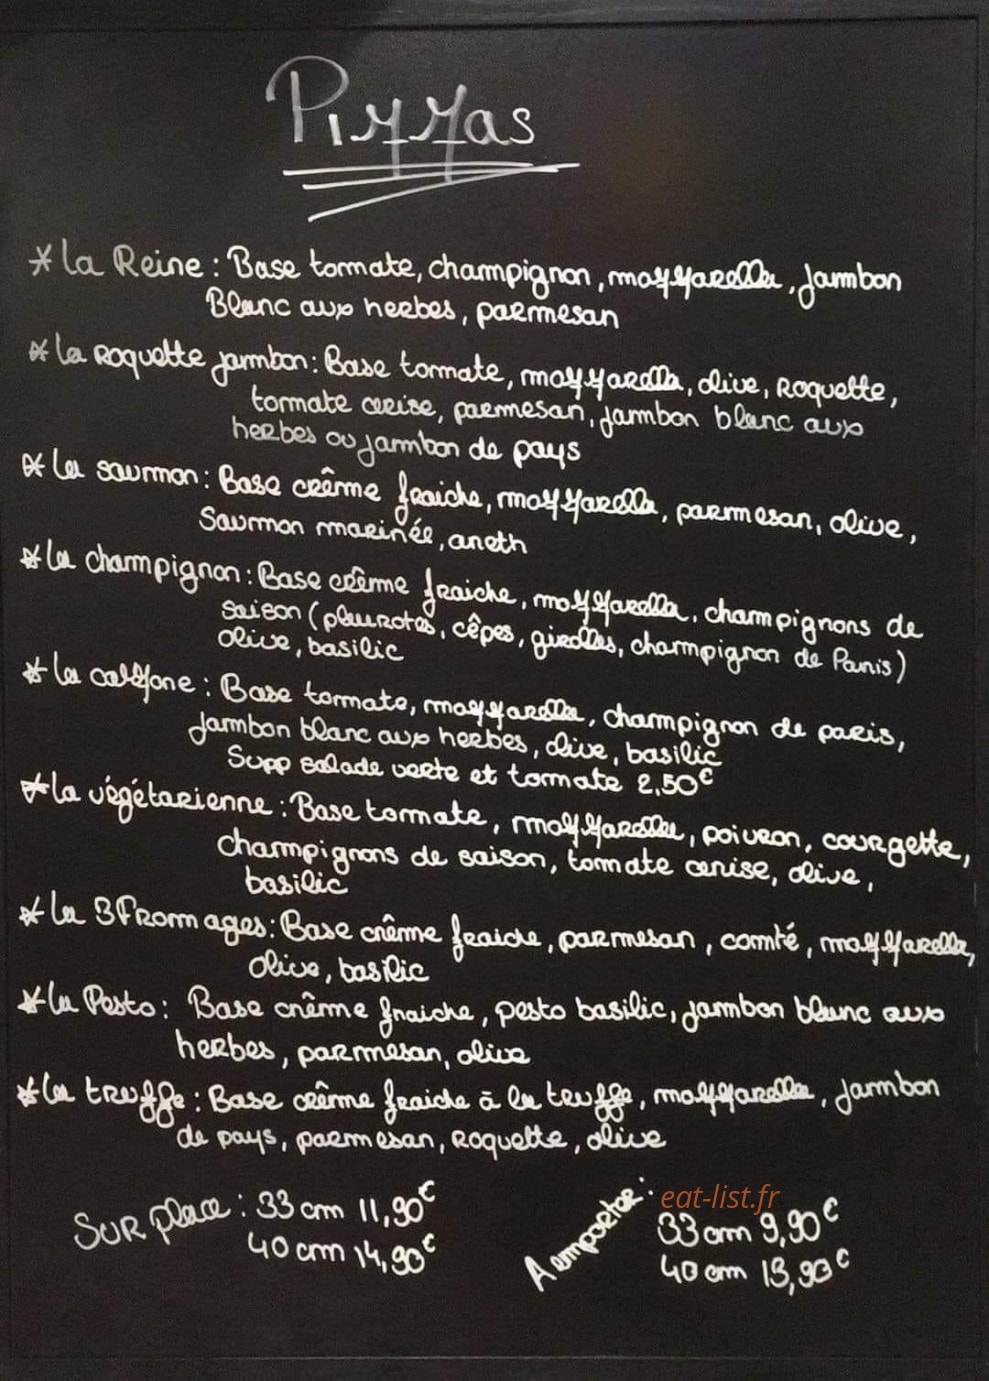 Pizzas
* La Reine : Base tomate, champignon, mozzarella, jambon
Blanc aux herbes, parmesan
* La Roquette jambon : Base tomate, mozzarella, olive, Roquette,
tomate cerise, parmesan, jambon blanc aux
herbes ou jambon de pays
* La saumon : Base crême fraiche, mozzarella, parmesan, olive,
Saumon marinée, aneth
* La champignon : Base crême fraiche, mozzarella, champignons de
saison (pleurotes, cêpes, girolles, champignon de Paris)
olive, basilic
* La calzone : Base tomate, mozzarella, champignon de paris,
jambon blanc aux herbes, olive, basilic
Supp salade verte et tomate 2,50€
* La végétarienne : Base tomate, mozzarella, poivron, courgette,
champignons de saison, tomate cerise, olive,
basilic
* La 3 Fromages : Base crême fraiche, parmesan, comté, mozzarella,
olive, basilic
* La Pesto : Base crême fraiche, pesto basilic, jambon blanc aux
herbes, parmesan, olive
* La truffe : Base crême fraiche à la truffe, mozzarella, jambon
de pays, parmesan, roquette, olive
Sur place : 33 cm 11,90€
40 cm 14,90€
A emporter :
eat-list.fr
33 cm 9,90€
40 cm 13,90€